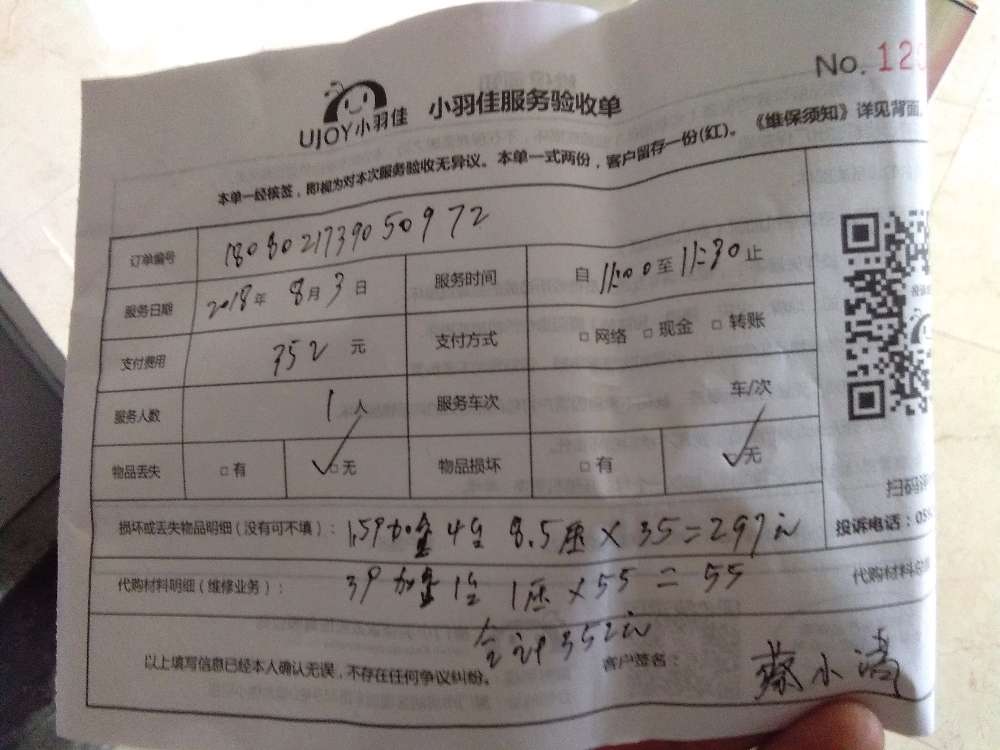 No. 120
UJOY小羽佳 小羽佳服务验收单
本单一经核签，即视为对本次服务验收无异议。本单一式两份，客户留存一份(红)。《维保须知》详见背面
订单编号 1808021739050972
服务日期 2018年 8月 3日 服务时间 自 11:00 至 11:30 止
支付费用 352 元 支付方式 □网络 □现金 □转账
服务人数 1 人 服务车次 车/次
物品丢失 □有 ✓□无 物品损坏 □有 ✓□无
扫码
损坏或丢失物品明细（没有可不填）： 1.5P加 4台 8.5压×35=297元
投诉电话：05
代购材料明细（维修业务）： 3P 加 1台 1压×55=55
代购材料
合计352元
以上填写信息已经本人确认无误，不存在任何争议纠纷。 客户签名： 蔡小